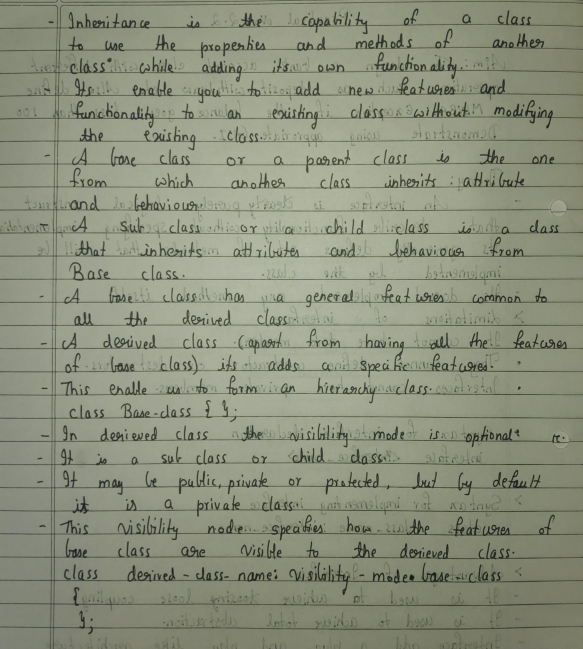 - Inheritance is the capability of a class
to use the properties and methods of another
class while adding its own functionality.
- Its enable you to add new features and
functionality to an existing class without modifying
the existing class.
- A base class or a parent class is the one
from which another class inherits attribute
and behaviour
- A sub class or a child class is a class
that inherits attributes and behaviour from
Base class.
- A base class has a general features common to
all the derived class
- A derived class (apart from having all the features
of base class) its adds a specific features.
- This enable us to form an hierarchy class.
class Base-class { };
- In derieved class the visibility mode is optional
- It is a sub class or child class.
- It may be public, private or protected, but by default
it is a private class.
- This visibility node specifies how the features of
base class are visible to the derieved class.
class derived-class-name: visibility-mode base-class
{
};